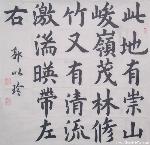 此地有崇山
峻嶺茂林修
竹又有清流
激湍暎帶左
右